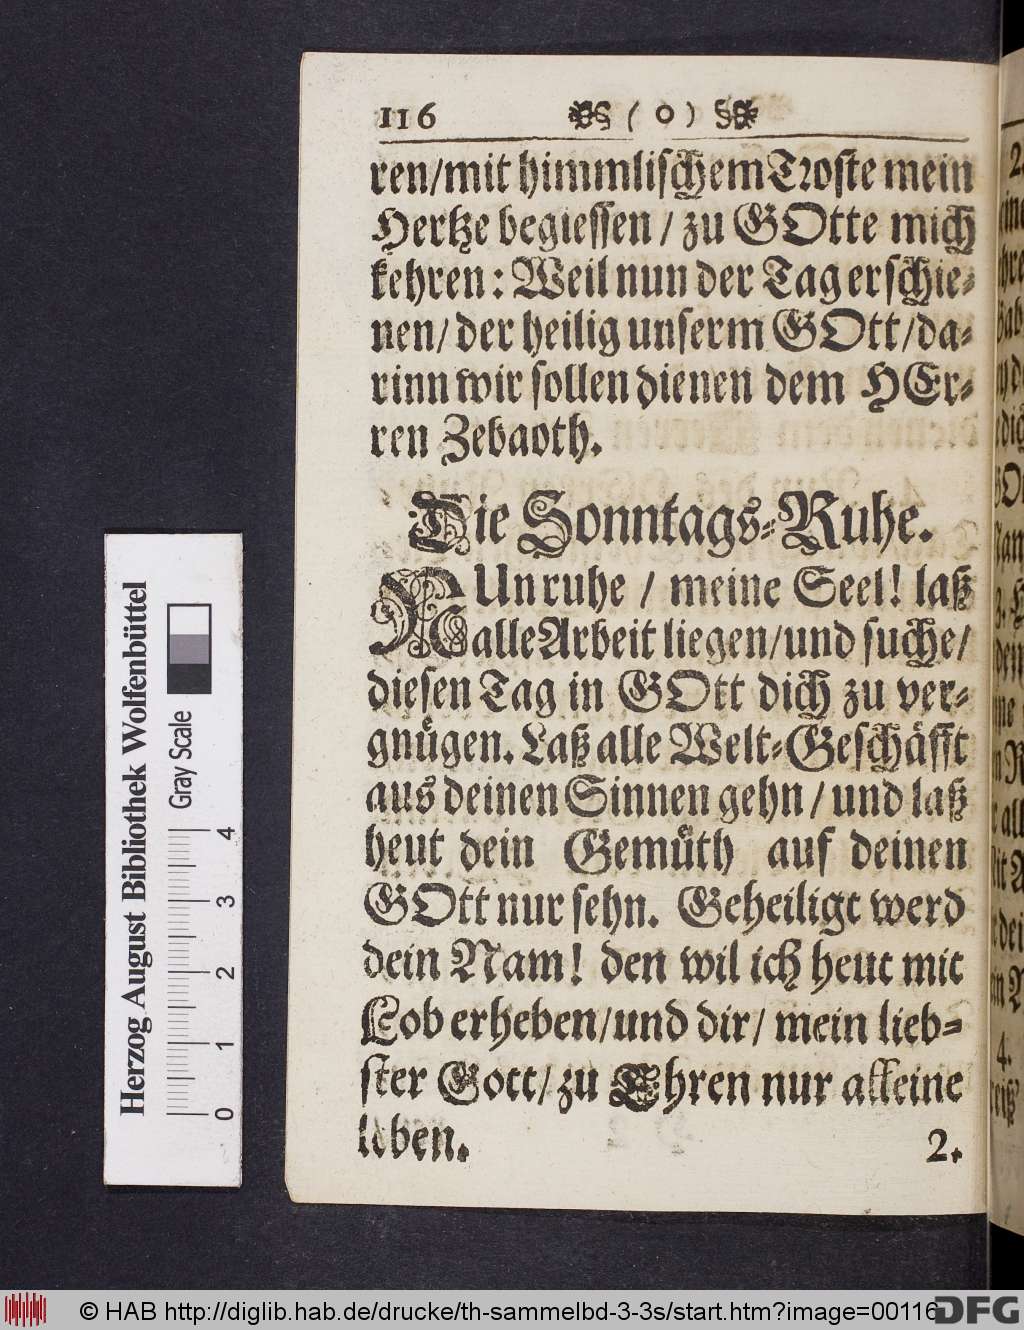 116 ( o )
ren/mit himmlischem Troste mein
Hertze begiessen / zu GOtte mich
kehren: Weil nun der Tag erschie-
nen/ der heilig unserm GOtt/da-
rinn wir sollen dienen dem HEr-
ren Zebaoth.
Die Sonntags-Ruhe.
NUn ruhe / meine Seel! laß
alle Arbeit liegen/und suche/
diesen Tag in GOtt dich zu ver-
gnuͤgen. Laß alle Welt-Geschaͤfft
aus deinen Sinnen gehn / und laß
heut dein Gemuͤth auf deinen
GOtt nur sehn. Geheiligt werd
dein Nam! den wil ich heut mit
Lob erheben/und dir/ mein lieb-
ster Gott/ zu Ehren nur alleine
leben.
2.
Herzog August Bibliothek Wolfenbüttel
Gray Scale
0 1 2 3 4
© HAB http://diglib.hab.de/drucke/th-sammelbd-3-3s/start.htm?image=00116
DFG